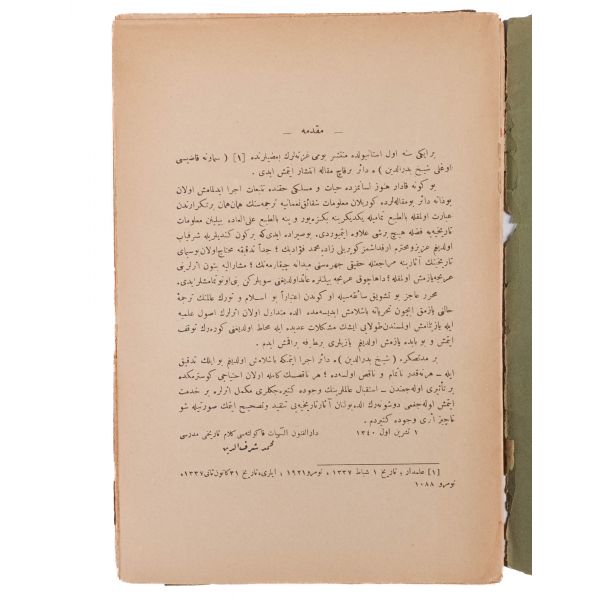 — مقدمه —
بر ایکی سنه اول استانبولده منتشر یومی غزته‌لرك بعضیلرنده [١] ( سماونه قاضیسی
اوغلی شیخ بدرالدین ) ه دائر برقاچ مقاله انتشار ایتمش ایدی .
بو کونه قادار هنوز لسانمزده حیات و مسلکی حقنده تتبعات اجرا ایدلمامش اولان
بوذاته دائر بومقاله‌لرده کوریلان معلومات شقائق‌نعمانیه ترجمه‌سنك همان‌همان برتکرارندن
عبارت اولمقله بالطبع تمامیله یکدیکرینه بکزه‌یور و ینه بالطبع علی‌العاده بیلینن معلومات
تاریخیه‌یه فضله هیچ برشی علاوه ایتمیوردی . بوصیراده ایدی‌که برکون کندیلریله شرفیاب
اولدیغم عزیزومحترم ارقداشمز کوپریلی زاده محمد فؤادبك ؛ جداً تدقیقه محتاج اولان بوسیمای
تاریخینك آثارینه مراجعتله حقیقی چهره‌سنی میدانه چیقارمه‌نك ؛ مشارالیه بتون اثرلرینی
عربجه یازمش اولمقله ؛ داهاچوق عربجه بیلنلره عائداولدیغنی سویلرکن بنی اونوتمامشلرایدی.
محرر عاجز بو تشویق سائقه‌سیله او کوندن اعتباراً بو اسلام و تورك عالمنك ترجمهٔ
حالنی یازمق ایچون تحریاته باشلامش ایدیسه‌مده الده متداول اولان اثرلرك اصول علمیه
ایله یازیلمامش اولمسندن‌طولایی ایشك مشکلات عدیده ایله محاط اولدیغنی کوره‌رك توقف
ایتمش و بو بابده یازمش اولدیغم یازیلری برطرفه براقمش ایدم .
بر مدتصکره ( شیخ بدرالدین ) ه دائر اجرا ایتمکه باشلامش اولدیغم بو ایلك تدقیق
ایله ــ هرنه‌قدر ناتمام و ناقص اولسه‌ده ؛ هر ناقصك کامله اولان احتیاجی کوسترمکده
بر تأثیری اوله‌جغندن ــ استقبال عالملرینك وجوده کتیره‌جکلری مکمل اثرلره بر خدمت
ایتمش اوله‌جغمی دوشونه‌رك الده‌بولنان آثارتاریخیه‌یی تنقید و تصحیح ایتمك صورتیله شو
ناچیز اثری وجوده کتیردم .
١ تشرین اول ١٣٤٠ دارالفنون الٓهیات فاکولته‌سی کلام تاریخی مدرسی
محمد شرف‌الدین
[١] علمدار ; تاریخ ١ شباط ١٣٣٧ ، نومرو ١٩٢١ ; ایلری، تاریخ ٣١ کانون‌ثانی ١٣٣٧،
نومرو ١٠٨٨